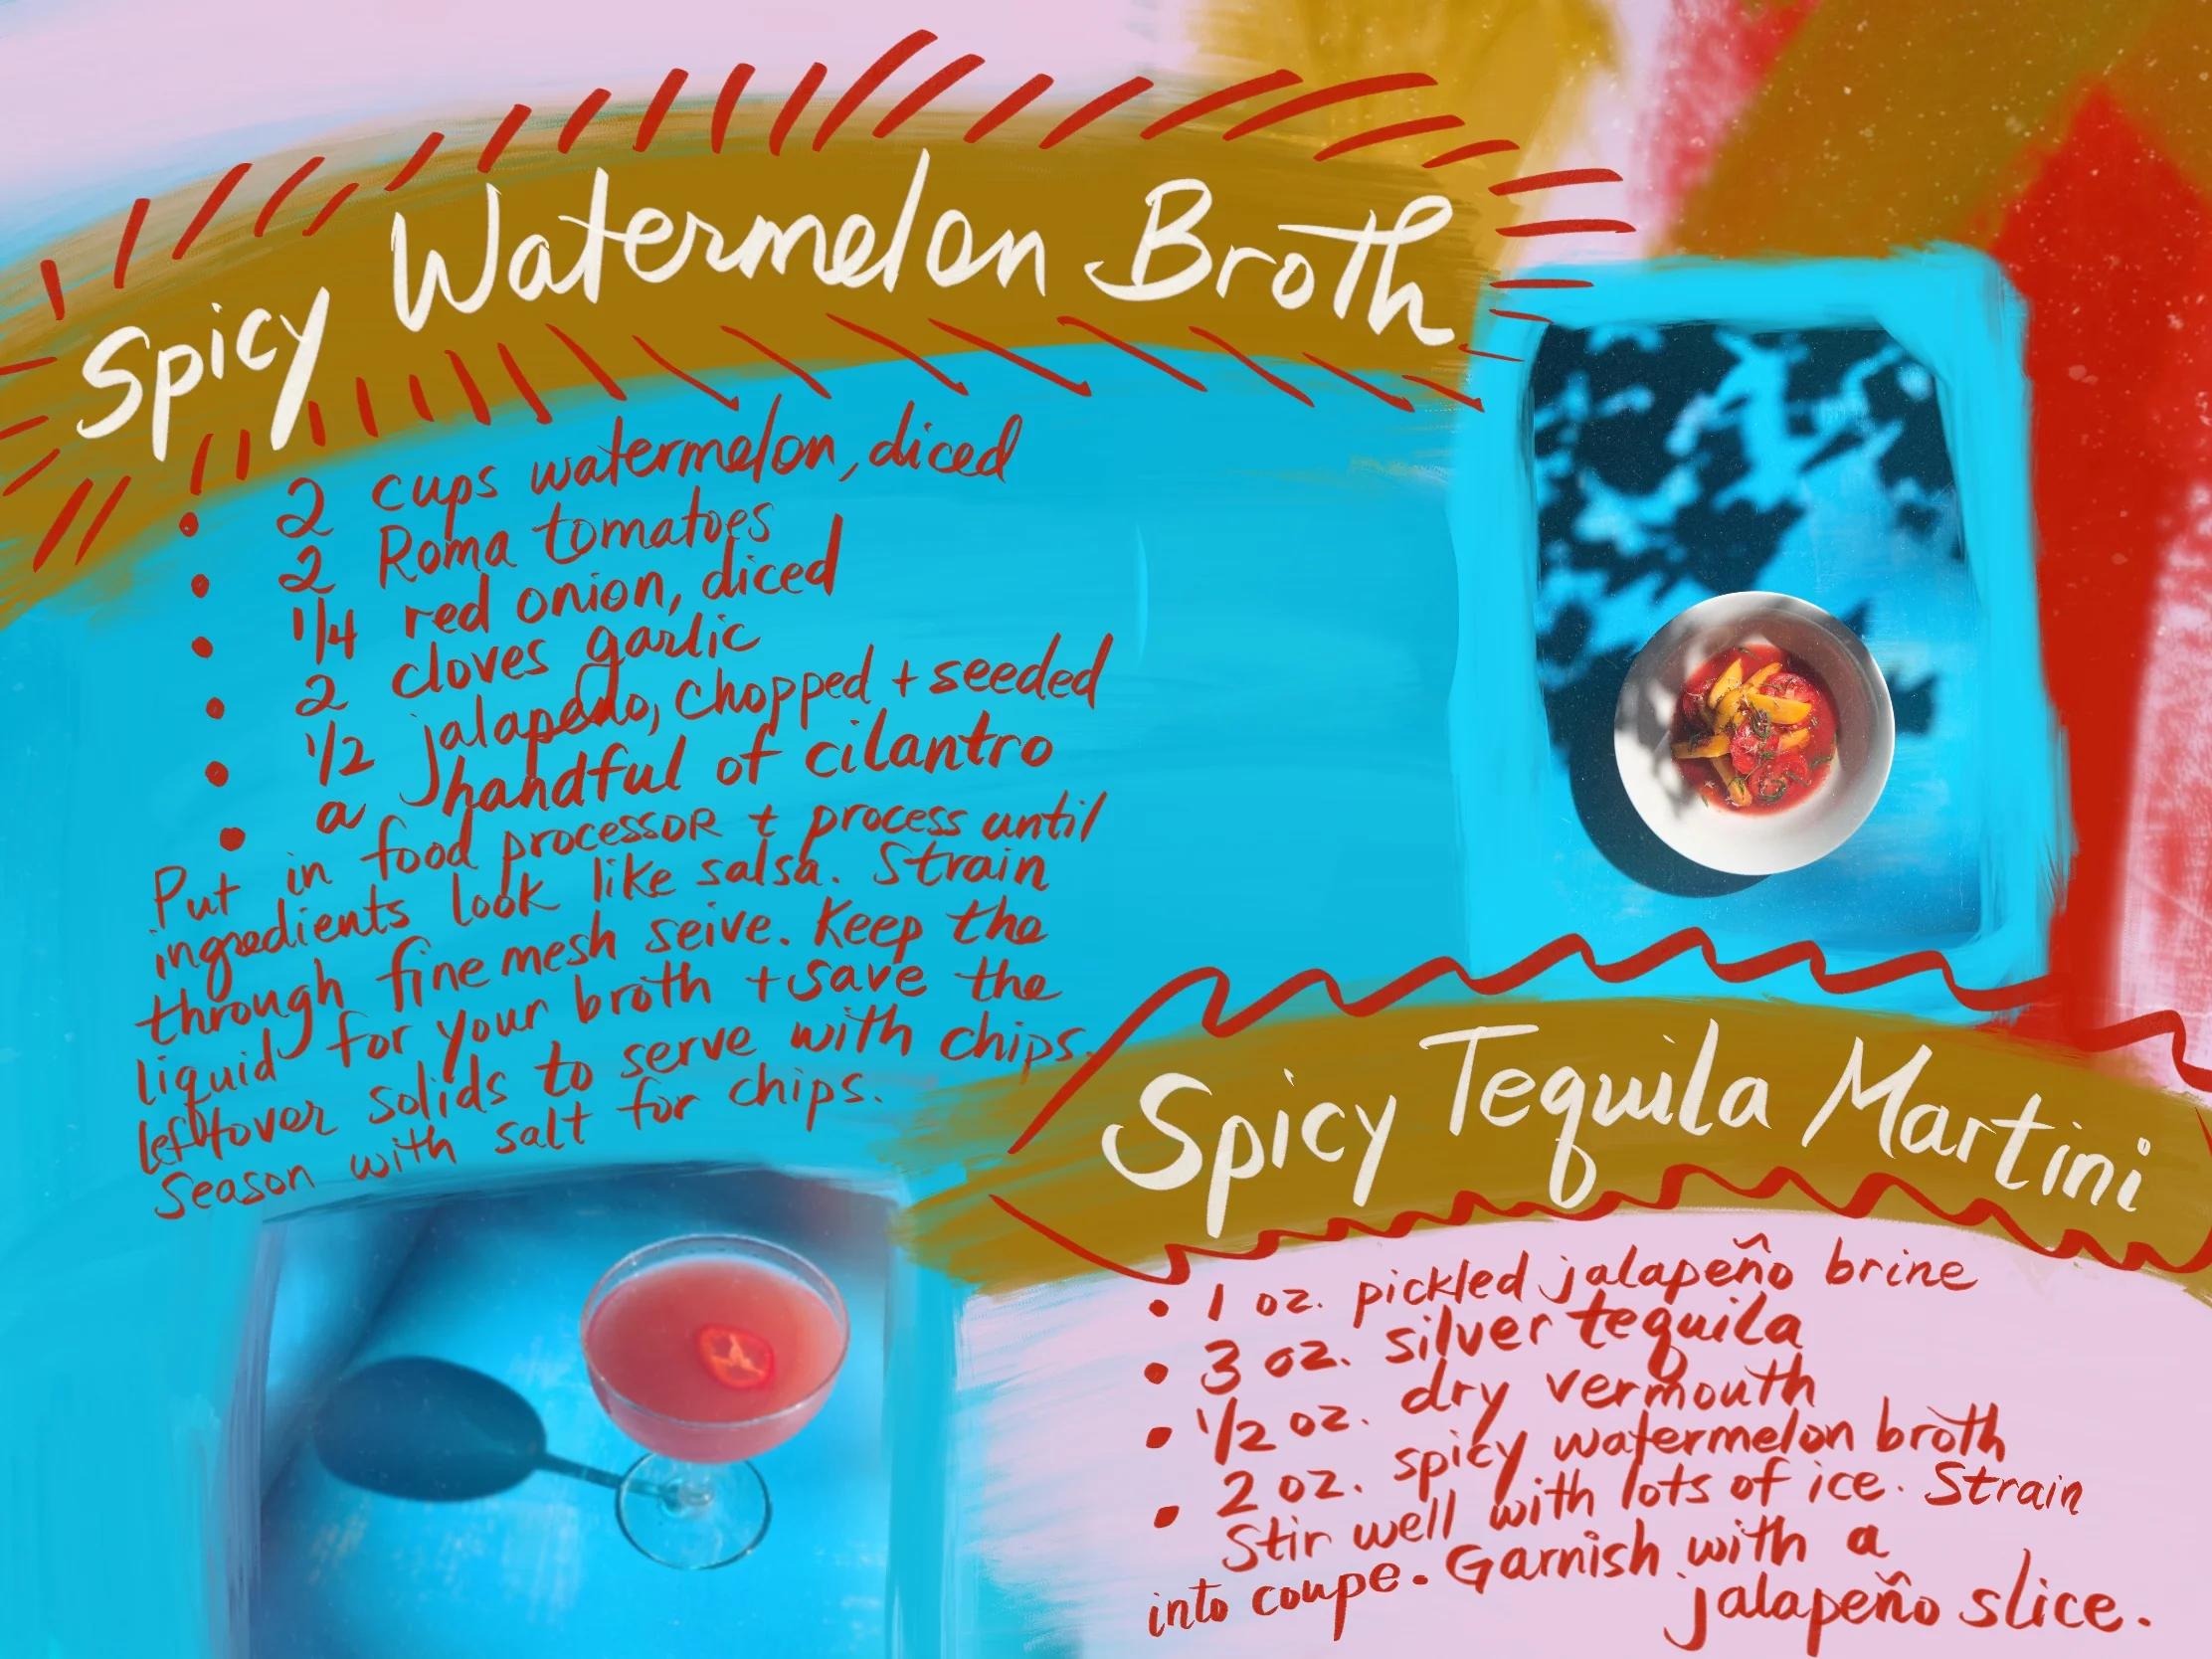 Spicy Watermelon Broth
• 2 cups watermelon, diced
• 2 Roma tomatoes
• 1/4 red onion, diced
• 2 cloves garlic
• 1/2 jalapeño, chopped + seeded
• a handful of cilantro
Put in food processor + process until
ingredients look like salsa. Strain
through fine mesh seive. Keep the
liquid for your broth + save the
leftover solids to serve with chips.
Season with salt for chips.
Spicy Tequila Martini
• 1 oz. pickled jalapeño brine
• 3 oz. silver tequila
• 1/2 oz. dry vermouth
• 2 oz. spicy watermelon broth
Stir well with lots of ice. Strain
into coupe. Garnish with a
jalapeño slice.